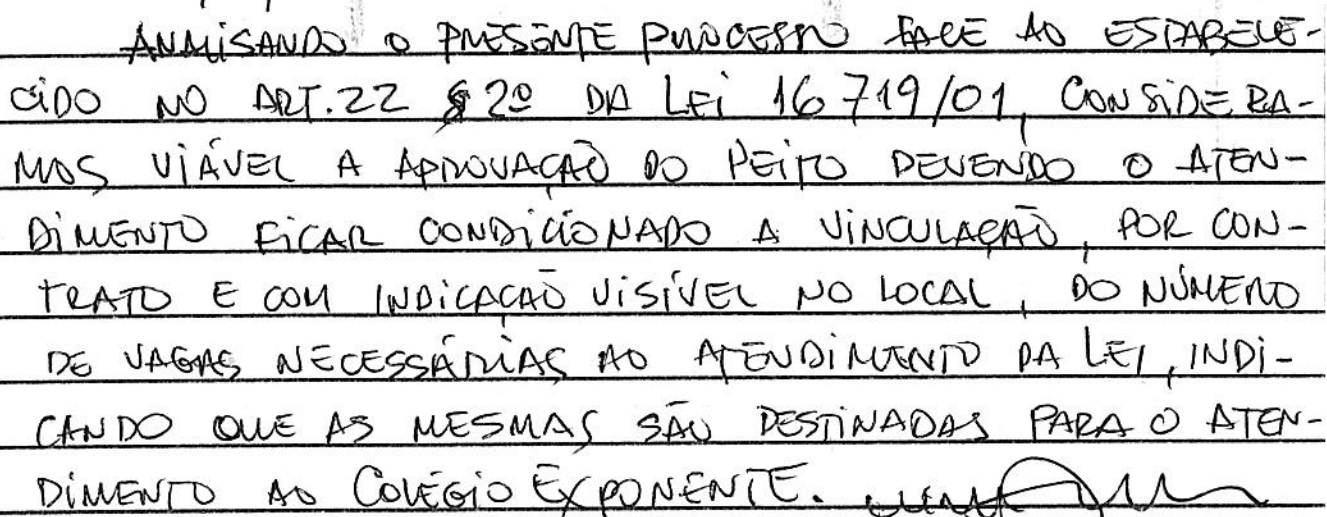 ANALISANDO O PRESENTE PROCESSO FACE AO ESTABELE-
CIDO NO ART. 22 § 2º DA LEI 16 719/01, CONSIDERA-
MOS VIÁVEL A APROVAÇÃO DO PEITO DEVENDO O ATEN-
DIMENTO FICAR CONDICIONADO A VINCULAÇÃO, POR CON-
TRATO E COM INDICAÇÃO VISÍVEL NO LOCAL, DO NÚMERO
DE VAGAS NECESSÁRIAS AO ATENDIMENTO DA LEI, INDI-
CANDO QUE AS MESMAS SÃO DESTINADAS PARA O ATEN-
DIMENTO AO COLÉGIO EXPONENTE.